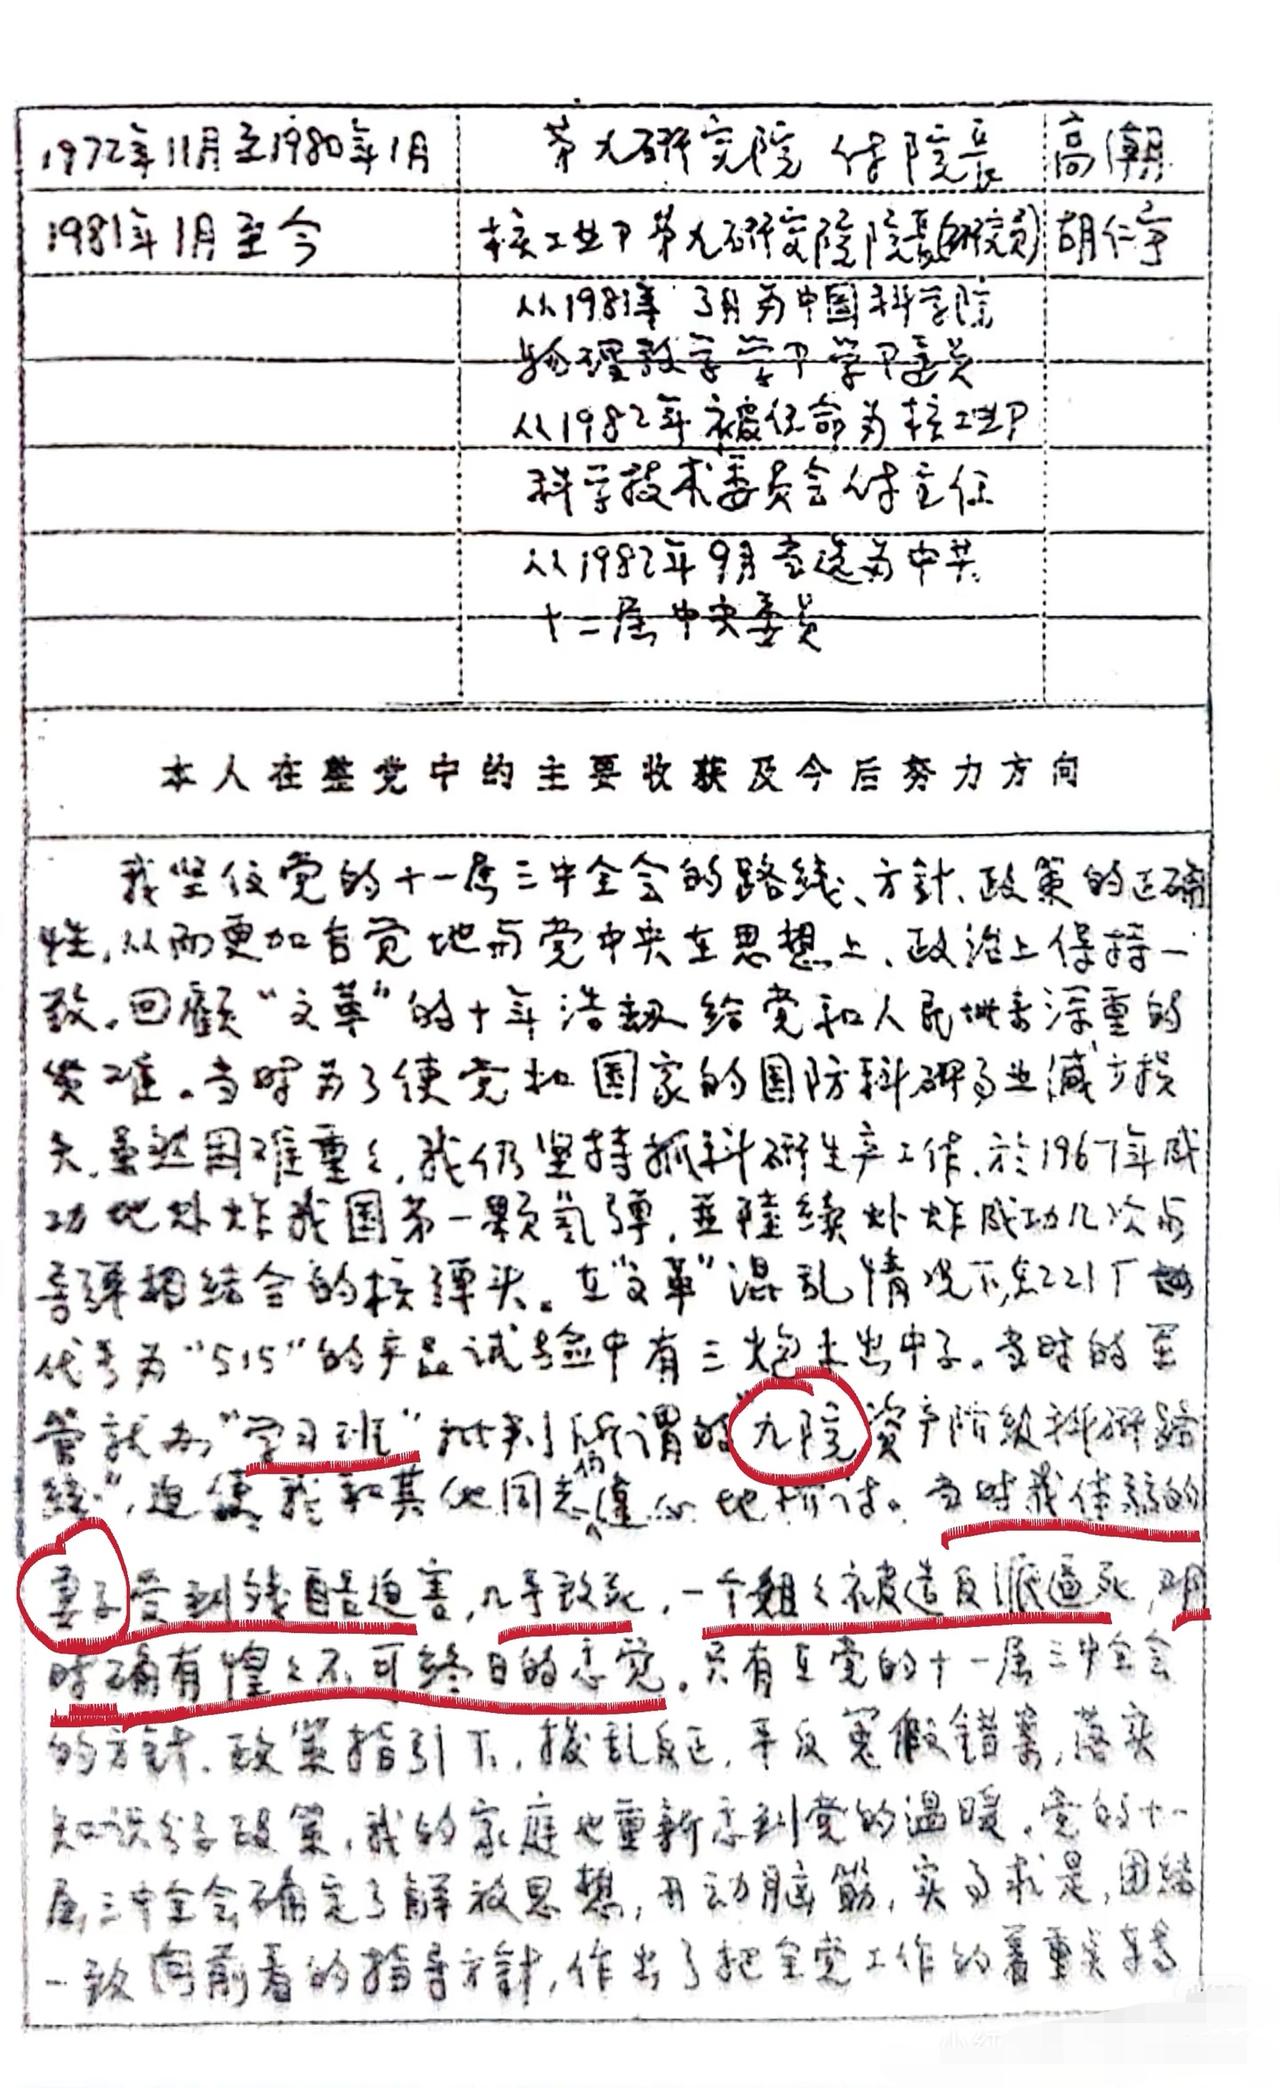 1972年11月至1980年1月 第九研究院 付院长 高潮
1981年1月至今 核工业卩第九研究院院长(研究员) 胡仁宇
从1981年3月为中国科学院
物理数学学卩学卩委员
从1982年被任命为核工业卩
科学技术委员会付主任
从1982年9月当选为中共
十二届中央委员
本人在整党中的主要收获及今后努力方向
我坚信党的十一届三中全会的路线、方針、政策的正确
性,从而更加自觉地与党中央在思想上、政治上保持一
致。回顾“文革”的十年浩劫给党和人民带来深重的
灾难。当时为了使党和国家的国防科研事业减少损
失,虽然困难重々,我仍坚持抓科研生产工作,於1967年成
功地爆炸我国第一颗氢弹,并陆续爆炸成功几次与
导弹相结合的核弹头。在“文革”混乱情况下,在221厂
代号为“515”的产品试验中有三炮未出中子。当时的军
管就办“学习班”批判所谓的“九院资产阶级科研路
线”,迫使我和其他同志们违心地检讨。当时我体弱的
妻子受到残酷迫害,几乎致死,一个姐々被造反派逼死,那
时确有惶々不可终日的感觉。只有在党的十一届三中全会
的方針、政策指引下,拨乱反正,平反冤假错案,落实
知识分子政策,我的家庭也重新感到党的温暖。党的十一
届三中全会确定了解放思想,开动脑筋,实事求是,团结
一致向前看的指导方針,作出了把全党工作的着重点转